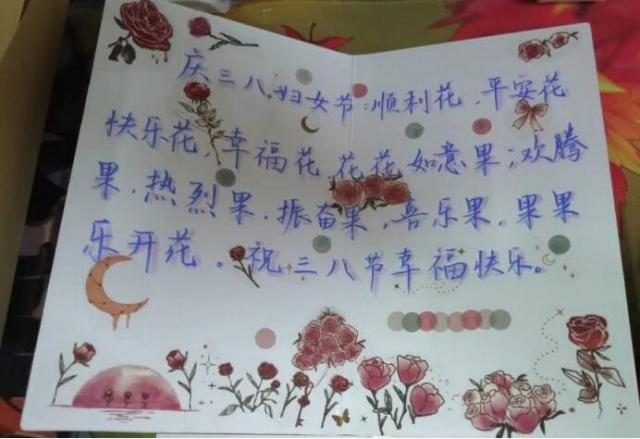 庆三八妇女节:顺利花,平安花
快乐花,幸福花,花花如意果;欢腾
果,热烈果,振奋果,喜乐果,果果
乐开花。祝三八节幸福快乐。